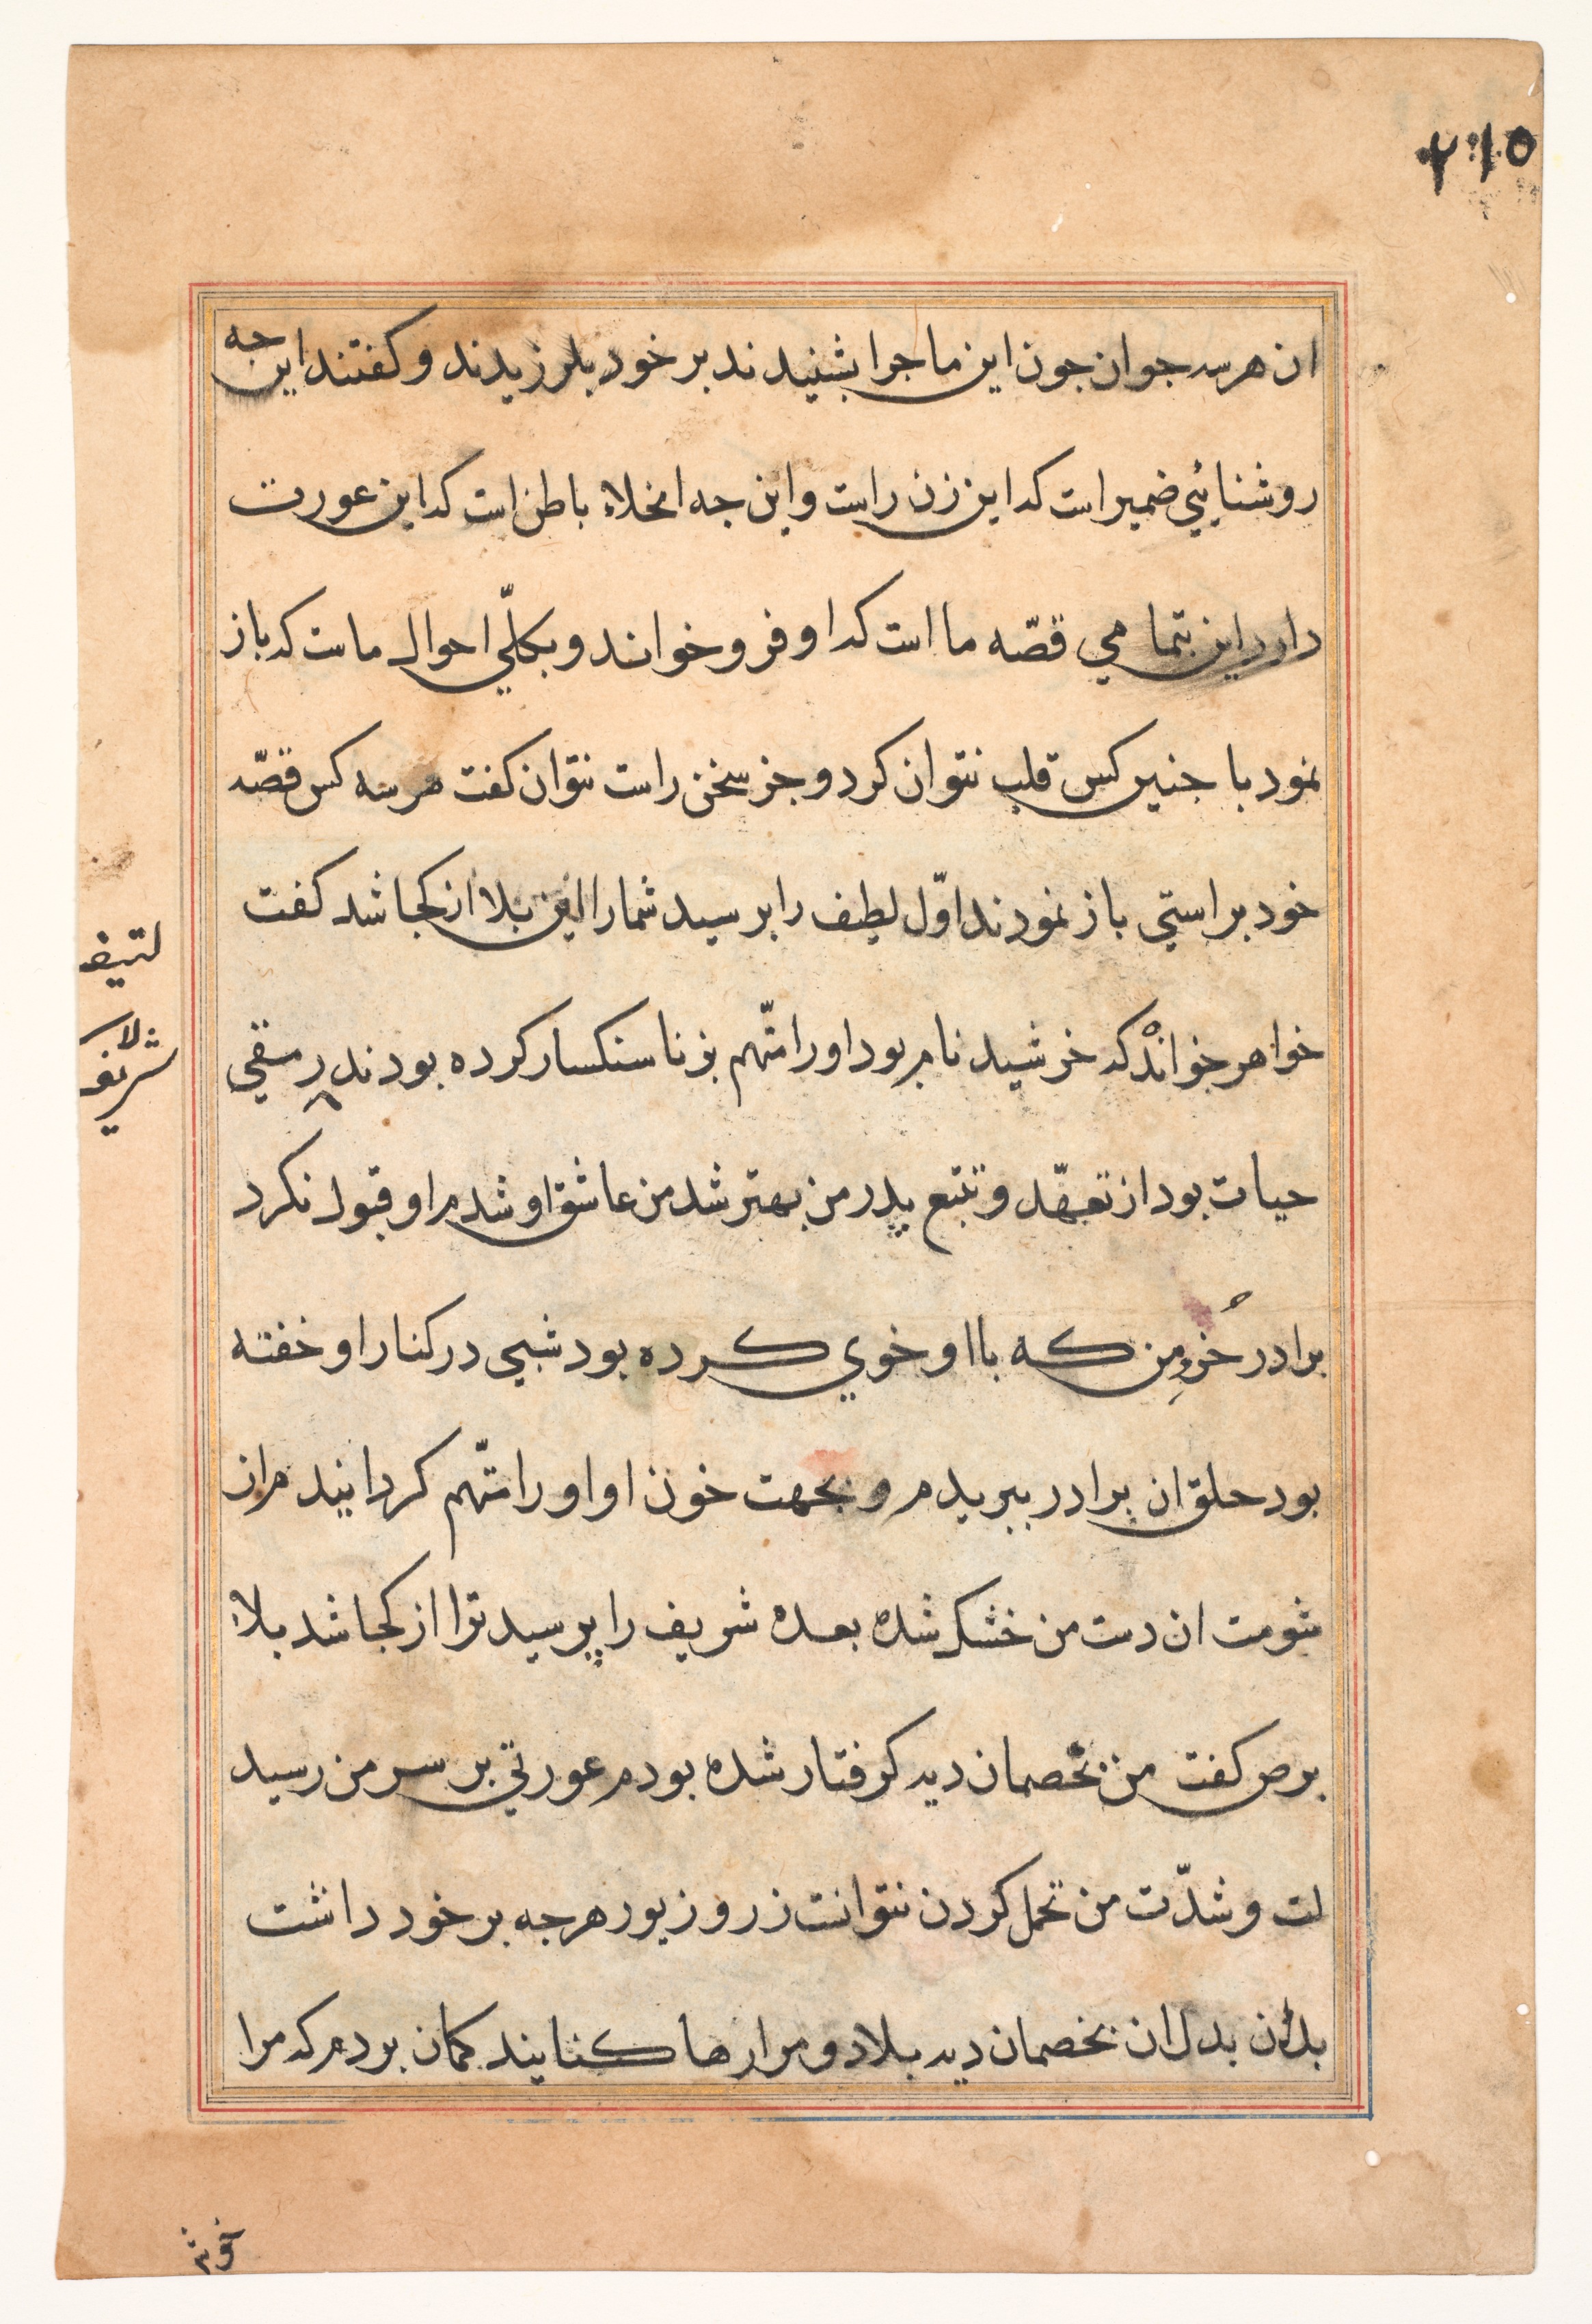 ۲۱۵
ان هرسه جوان جون این ماجرا بشنیدند بر خود بلرزیدند و کفتند این جه
روشنایئي ضمیر است که این زن راست واین جه انخلاء باطن است که این عورت
دارد این بتمامي قصّه ما است که او فرو خواند و بکلّي احوال ماست که باز
نمود با جنین کس قلب نتوان کرد و جز سخن راست نتوان کفت هر سه کس قصّه
خود براستي باز نمودند اوّل لطیف را برسید شمارا این بلا از کجا شد کفت
خواهر خواندْکه خرشید نام بود اورا متّهم بزنا سنکسار کرده بودند رمقي
حیات بود از تعهّد و تتبع پدر من بهتر شد من عاشق او شدم او قبول نکرد
برادر خُردِ من که با او خوي کرده بود شبي در کنار او خفته
بود حلق ان برادر ببریدم و بجهت خون او اورا متّهم کردانیدم از
شومت ان دست من خشک شده بعده شریف را پرسید ترا از کجا شد بلاء
برص کفت من بخصمان دیه کرفتار شده بودم عورتي بر سر من رسید
لت و شدّت من تحمل کردن نتوانست زر و زیور هرجه بر خود داشت
بدان بدل ان بخصمان دیه بداد و مرا رها کنانید کمان بردم که مرا
لتیف
شریف